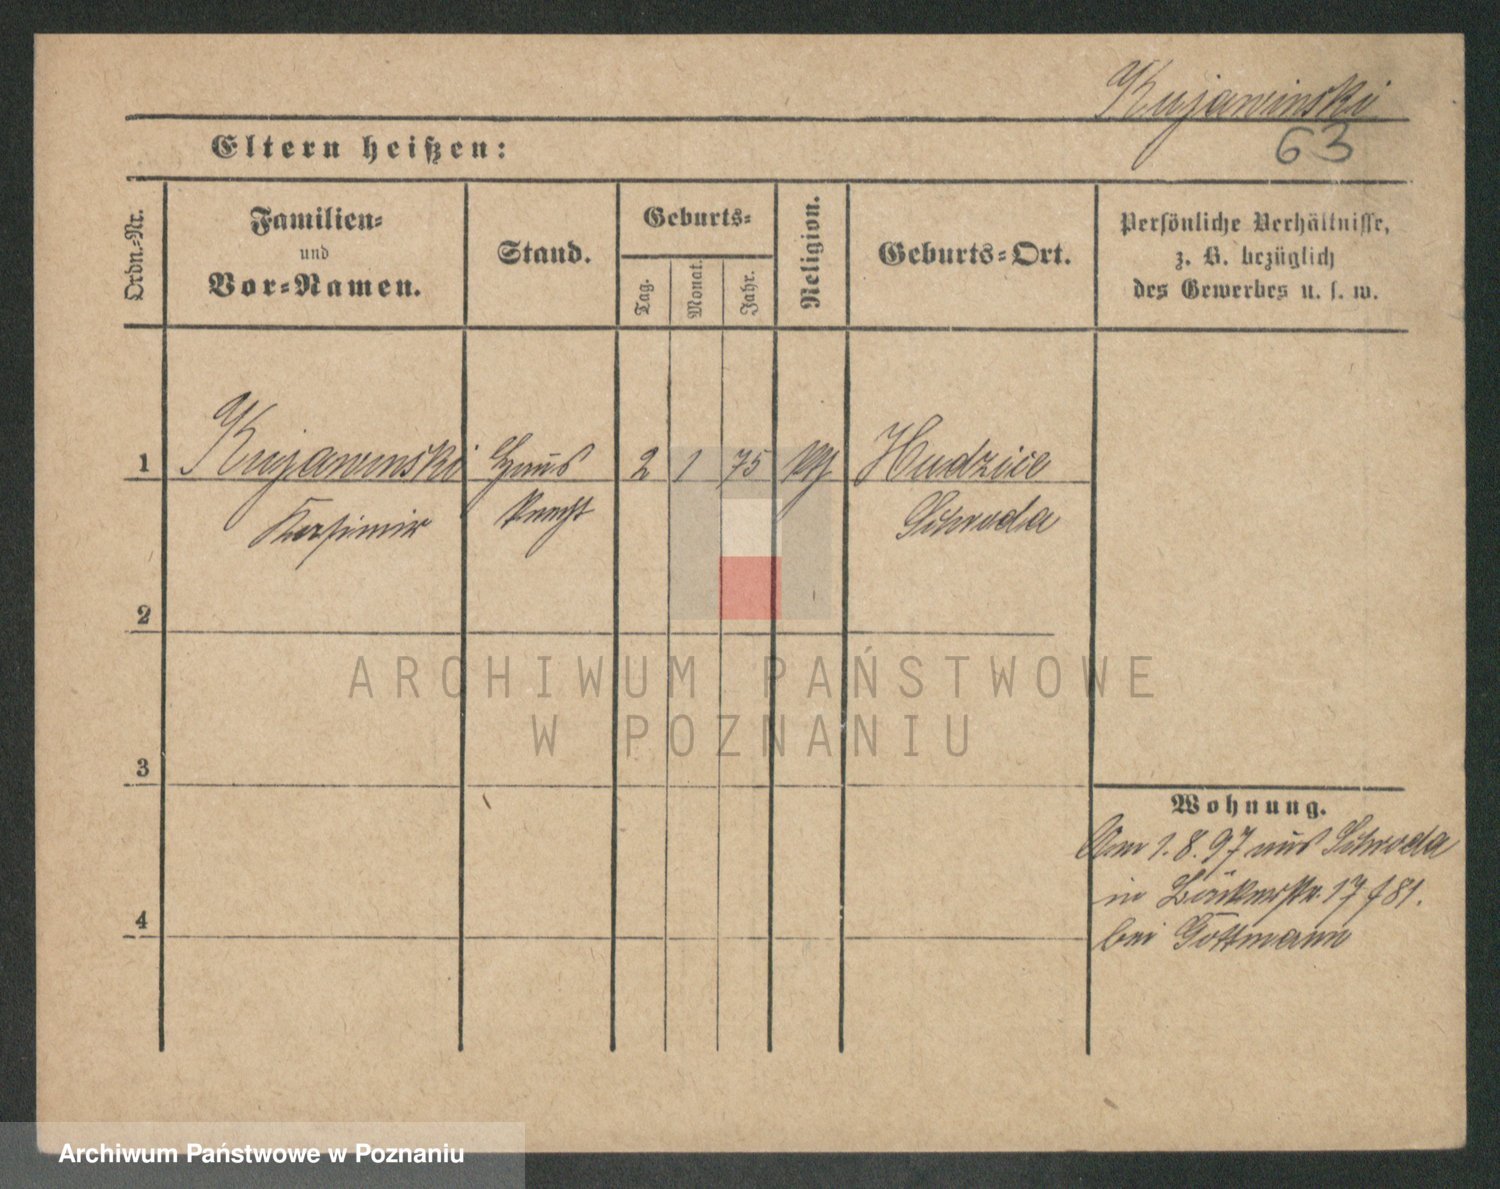 Kujawinski
63
Eltern heißen:
Ordn.-Nr.
Familien-
und
Vor-Namen.
Stand.
Geburts-
Tag.
Monat.
Jahr.
Religion.
Geburts-Ort.
Persönliche Verhältnisse,
z. B. bezüglich
des Gewerbes u. s. w.
1
Kujawinski Haus 2 1 75 Hudzice
Kasimir knecht Schroda
2
ARCHIWUM PAŃSTWOWE
W POZNANIU
3
Wohnung.
Am 1.8.97 aus Schroda
in 17 f 81.
4
bei Gottmann
Archiwum Państwowe w Poznaniu